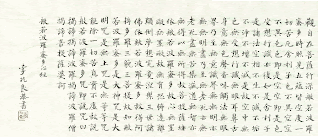 觀自在菩薩行深般若波羅
蜜多時照見五蘊皆空度一
切苦厄舍利子色不異空空
不異色色即是空空即是色
受想行識亦復如是舍利子
是諸法空相不生不滅不垢
不淨不增不減是故空中無
色無受想行識無眼耳鼻舌
身意無色聲香味觸法無眼
界乃至無意識界無無明亦
無無明盡乃至無老死亦無
老死盡無苦集滅道無智亦
無得以無所得故菩提薩埵
依般若波羅蜜多故心無罣
礙無罣礙故無有恐怖遠離
顛倒夢想究竟涅槃三世諸
佛依般若波羅蜜多故得阿
耨多羅三藐三菩提故知般
若波羅蜜多是大神咒是大
明咒是無上咒是無等等咒
能除一切苦真實不虛故說
般若波羅蜜多咒即說咒曰
揭諦揭諦波羅揭諦波羅僧
揭諦菩提薩婆訶
般若波羅蜜多心經